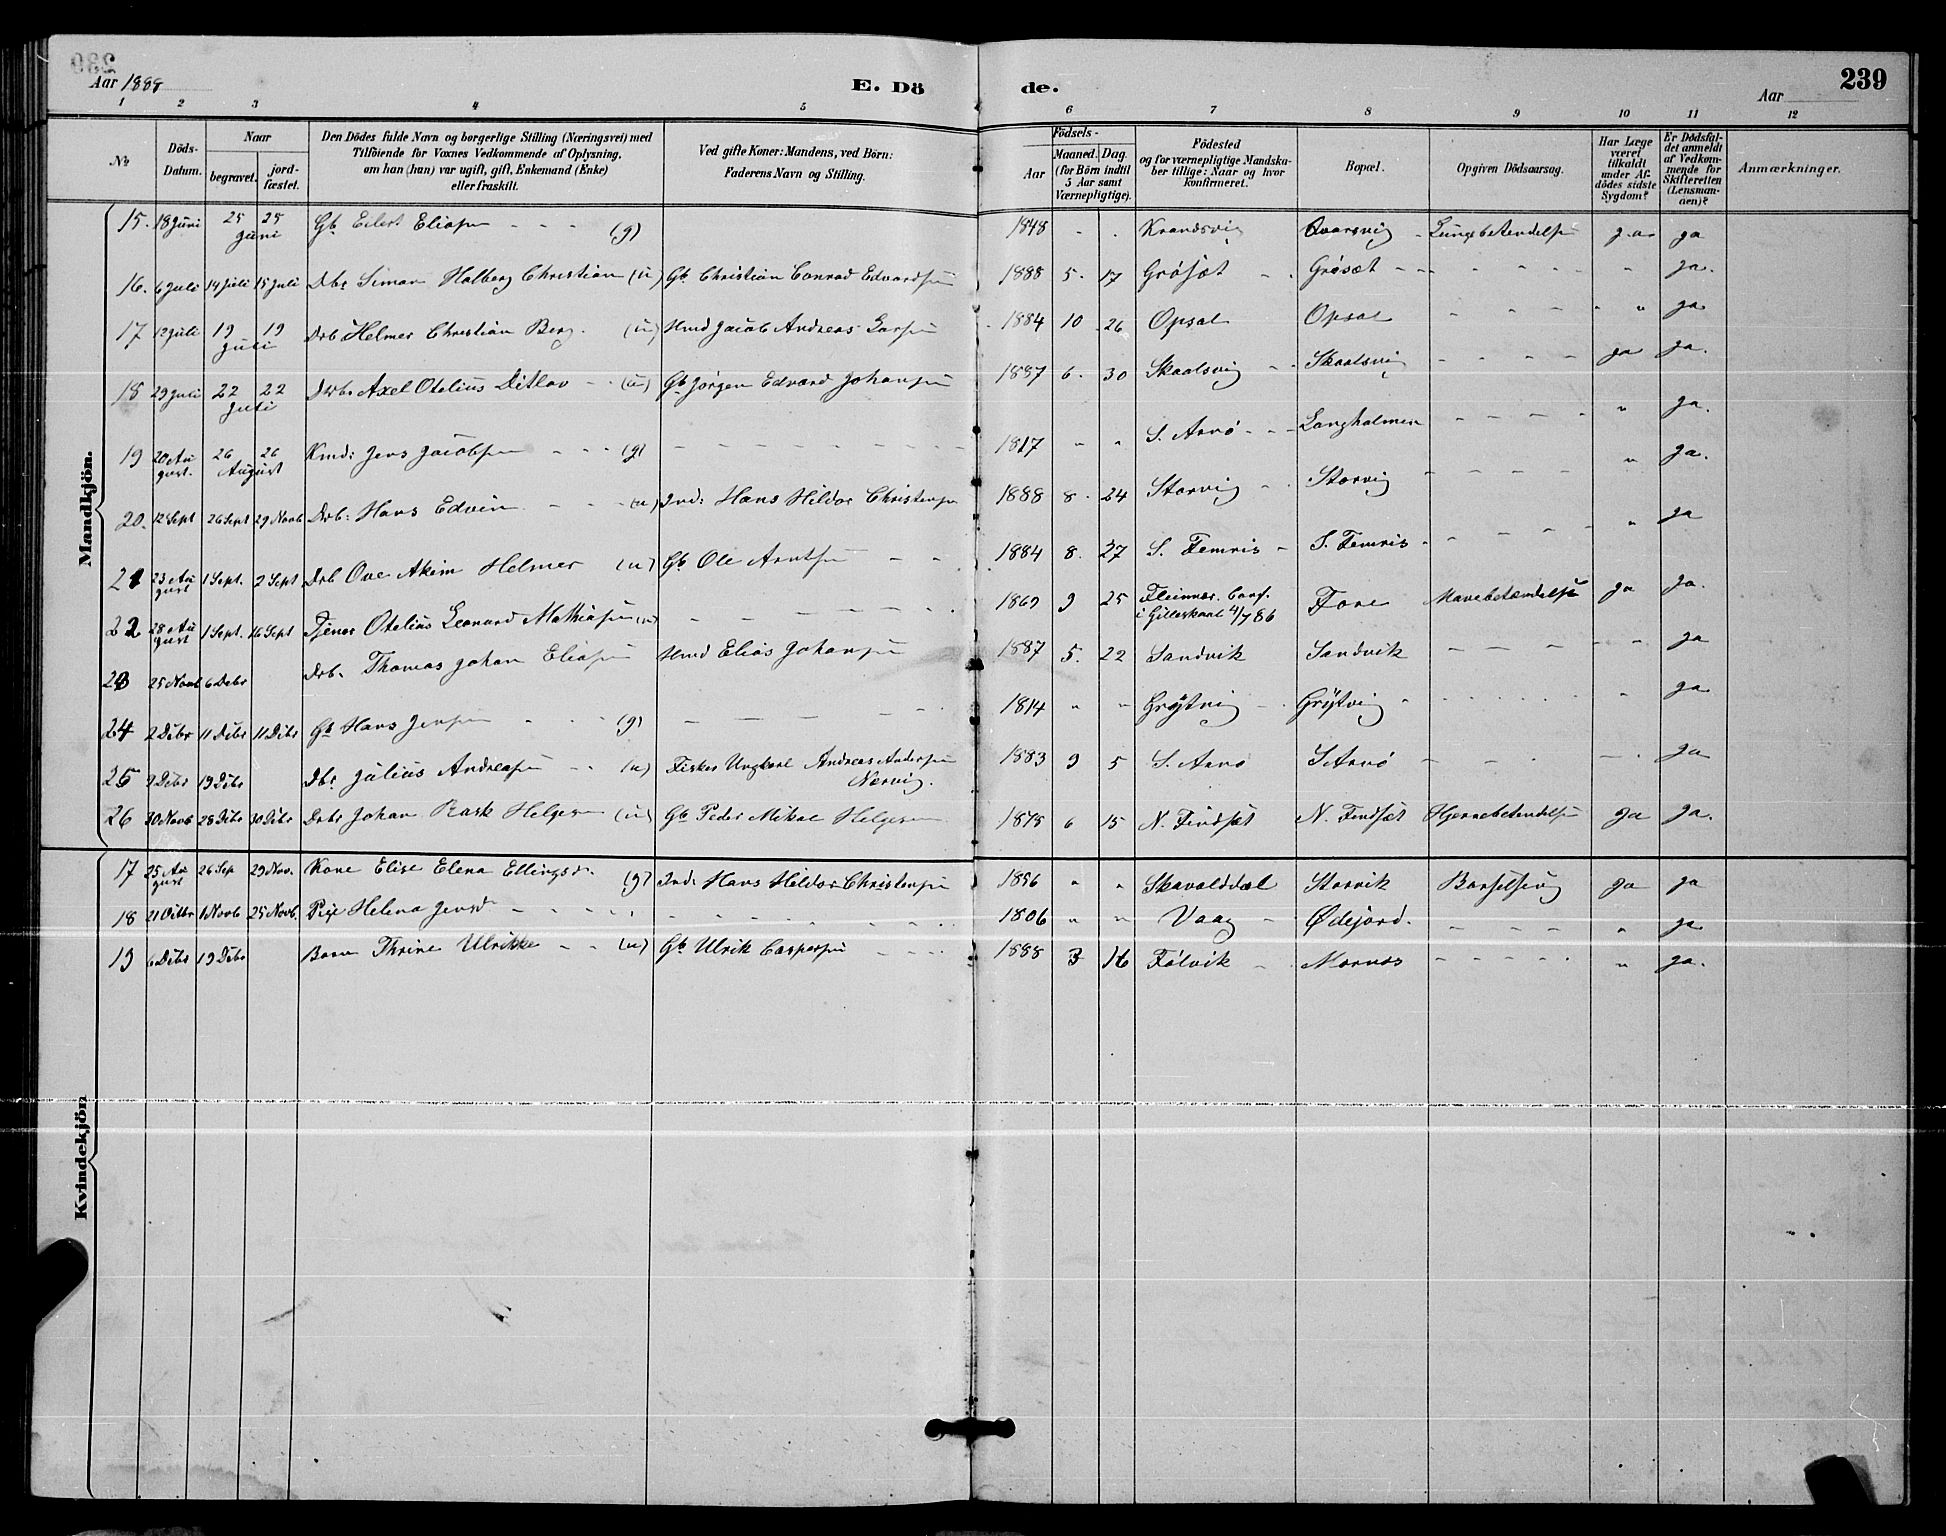 239
Aar 1888 E. Dö de. Aar
1 2 3 4 5 6 7 8 9 10 11 12
No Döds-Datum. Naar begravet. jordfæstet. Den Dödes fulde Navn og borgerlige Stilling (Næringsvei) med Tilföiende for Voxnes Vedkommende af Oplysning, om han (hun) var ugift, gift, Enkemand (Enke) eller fraskilt. Ved gifte Koner: Mandens, ved Börn: Faderens Navn og Stilling. Födsels- Aar Maaned. Dag. (for Börn indtil 5 Aar samt Værnepligtige). Födested og for værnepligtige Mandskaber tillige: Naar og hvor konfirmeret. Bopæl. Opgiven Dödsaarsag. Har Læge været tilkaldt under Afdödes sidste Sygdom? Er Dödsfaldet anmeldt af Vedkommende for Skifteretten (Lensmanden)? Anmærkninger.
Mandkjön.
15. 18 Juni 25 25 Juni Gb. Eilert Eliasen (g) 1848 " " Qvarsvig Lungebetendelse ja ja
16. 6 Juli 14 Juli 15 Juli Dbr. Simon Halberg Christian (u) Gb Christian Conrad Edvardsen 1888 5. 17 Grøsæt Grøsæt " ja.
17 12 Juli 19 19 Juli Drb Helmer Christian Berg (u) Hmd Jacob Andreas Larsen 1884 10 26 Opsal Opsal " ja
18 29 Juli 22 22 Juli Drbr Axel Otelius Ditlev (u) Gb. Jørgen Edvard Johansen 1887 6. 30 Skaalsvig Skaalsvig ja ja.
19 20 August. 26 26 August Kmd: Jens Jacobsen (g) 1817 " " S. Arnø Langholmen " ja.
20. 12 Sept 26 Sept 29 Novb Drb: Hans Edvin (u) Ind: Hans Hildor Christensen 1888 8. 24 Storvig Storvig " ja.
21 23 August 1 Sept. 2 Sept Drb Ove Akim Helmer (u) Gb Ole Arntsen 1884 8. 27 S. Femris S. Femris " ja
22 28 August 1 Sept. 16 Sept Tjener Otelius Leonard Mathiasen (u) 1869 9 25 Fleinvær. Conf. i Gilleskaal 4/7 86 Fore Mavebetændelse ja ja.
23 25 Novb 6 Debr Drb. Thomas Johan Eliasen Hmd Elias Johansen 1887 5. 22 Sandvik Sandvik " ja
24 2 Debr 11 Debr 11 Debr Gb Hans Jensen (g) 1814 " " Grøtvig Grøtvig " ja
25 9 Debr 19 Debr Dbr. Julius Andreasen (u) Fisker Ungkarl Andreas Andersen Nervig. 1883 9 5 S. Arnø S Arnø ja
26 30 Novb 28 Debr 30 Debr Drbr Johan Rask Helgesen (u) Gb Peder Mikal Helgesen 1878 6 15 N. Findsæt N. Findsæt Hjernebetendelse ja ja.
Kvindekjön
17 25 August 26 Sep 29 Nov. Kone Elise Elena Ellingsd. (g) Ind: Hans Hildor Christensen 1856 " " Skavolddal Storvik Barselseng ja ja
18 21 Octbr 1 Novb 25 Novb. Pige Helena Jensd 1806 " " Vaag Ødejord. " ja
19 6 Debr 19 Debr Barn Thrine Ulrikke (u) Gb Ulrik Caspersen 1888 3 16 Følvik Mornes " ja.